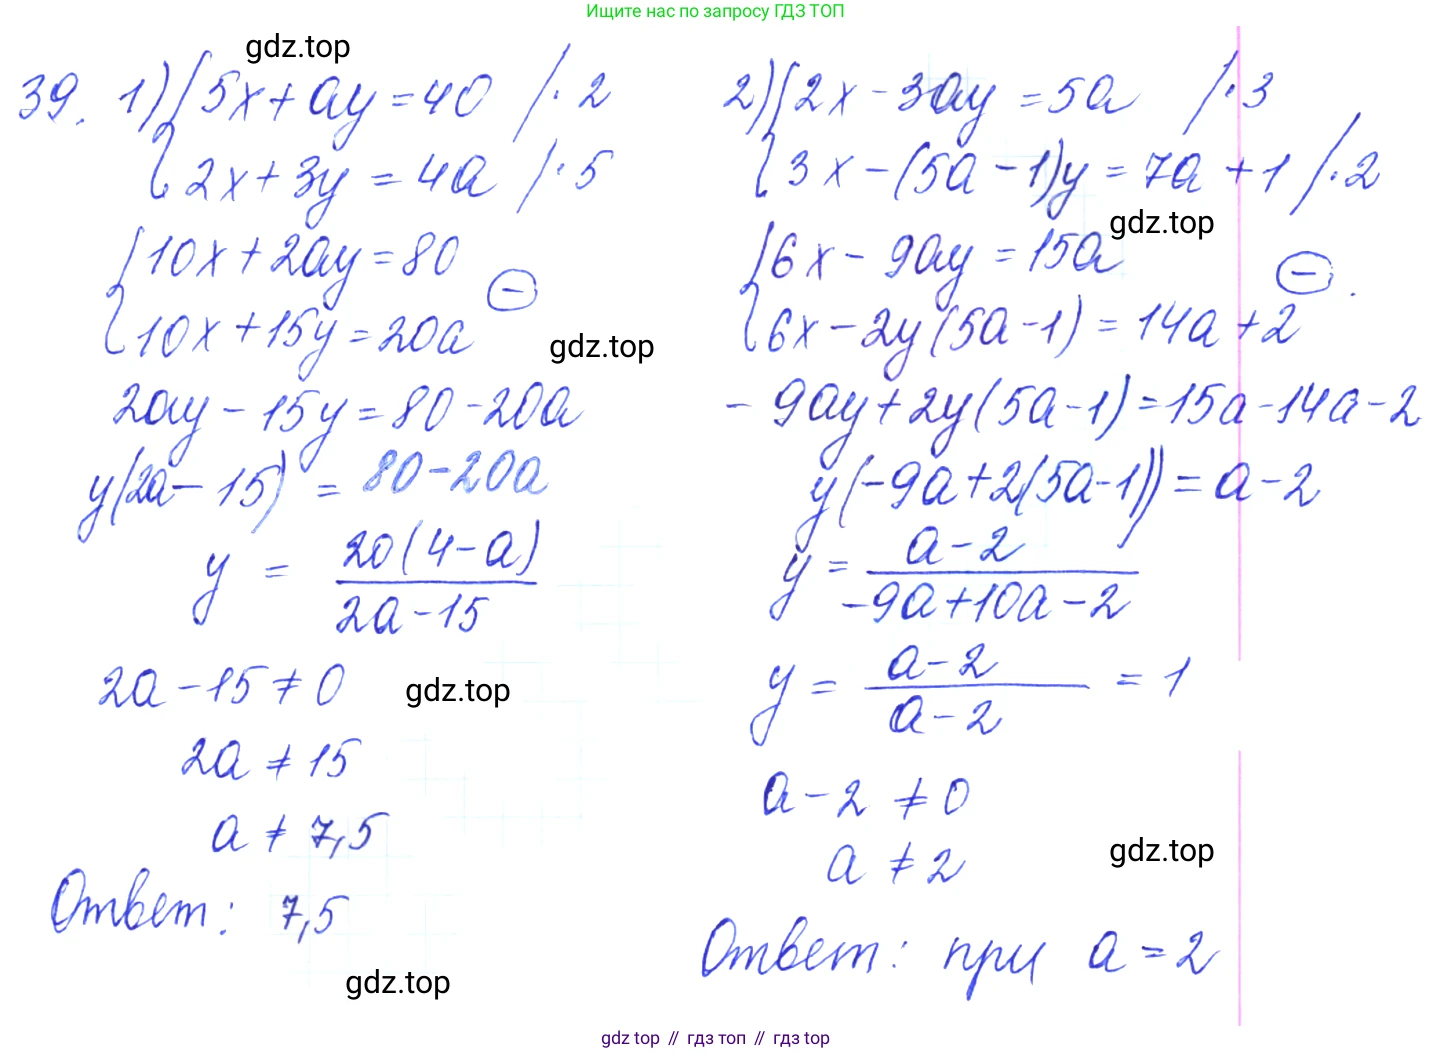 Ищите нас по запросу ГДЗ ТОП
gdz.top
39. 1) { 5x + ay = 40 / · 2
2x + 3y = 4a / · 5
{ 10x + 2ay = 80
10x + 15y = 20a
(−)
gdz.top
2ay − 15y = 80 − 20a
y(2a − 15) = 80 − 20a
y = 20(4 − a) / 2a − 15
2a − 15 ≠ 0
gdz.top
2a ≠ 15
a ≠ 7,5
Ответ: 7,5
gdz.top
2) { 2x − 3ay = 5a / · 3
3x − (5a − 1)y = 7a + 1 / · 2
gdz.top
{ 6x − 9ay = 15a
6x − 2y(5a − 1) = 14a + 2
(−).
− 9ay + 2y(5a − 1) = 15a − 14a − 2
y(−9a + 2(5a − 1)) = a − 2
y = a − 2 / −9a + 10a − 2
y = a − 2 / a − 2 = 1
a − 2 ≠ 0
a ≠ 2
gdz.top
Ответ: при a = 2
gdz top // гдз топ // gdz top